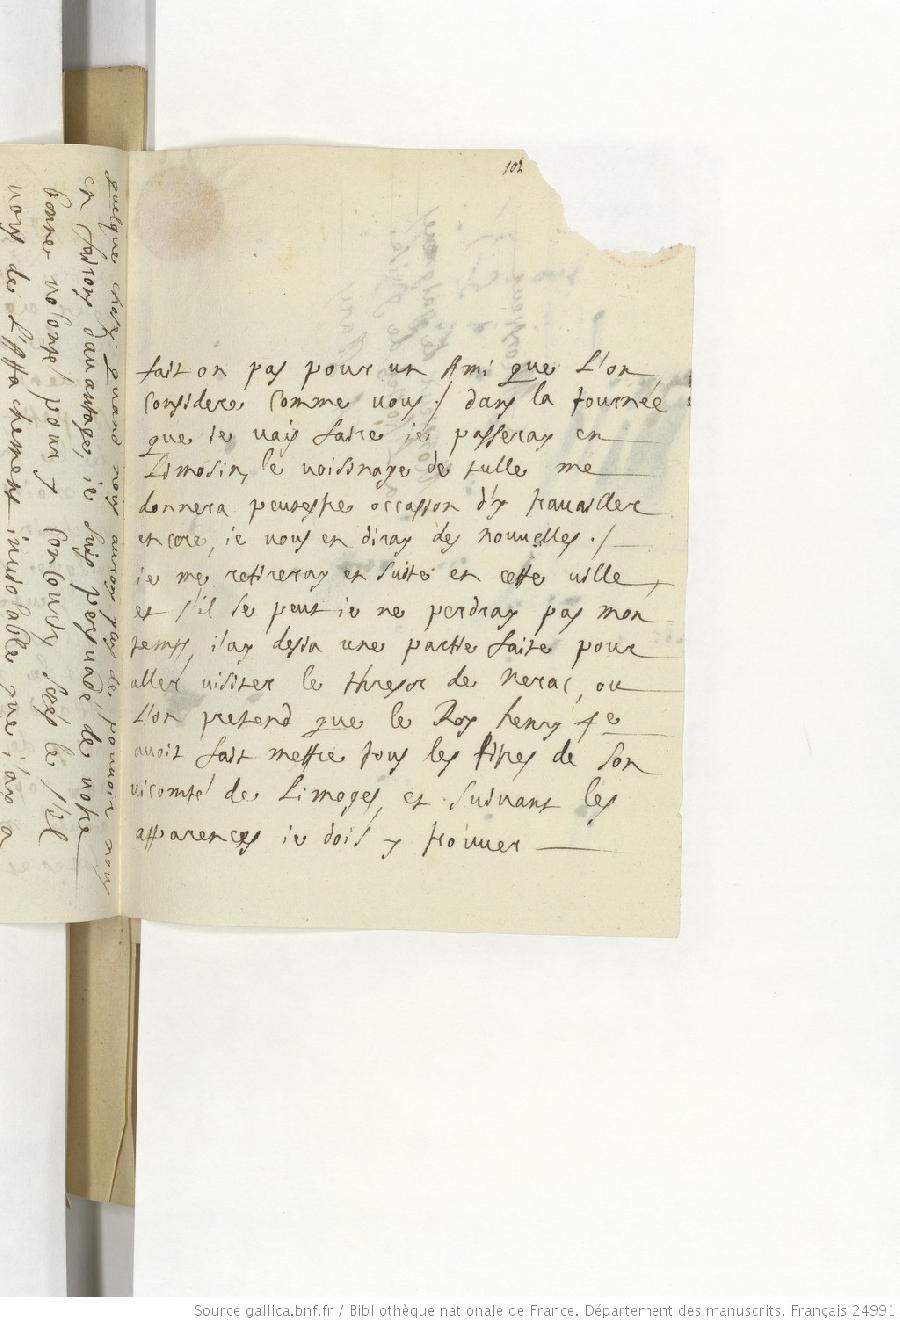 102
fait on pas pour un Ami que L'on
considere comme vous / dans la tournée
que ie vais faire iei passeray en
Limosin, le voisinage de tulle me
donnera peutestre occasion d'y travailler
encore, ie vous en diray des nouvelles ./
ie me retireray en suite en cette ville,
et s'il se peut ie ne perdray pas mon
temps, i'ay desia une partie faite pour
aller visiter le thresor de Nerac, ou
L'on pretend que le Roy henry 4e
avoit fait mettre tous les titres de son
vicomté de Limoges, et suivant les
apparences ie dois y trouver
quelque chose quand nous aurons plus de pouvoir nous
en fairons davantage, ie suis persuadé de votre
bonne volonté pour y concourir, soiés le s'il
vous de L'attachement inviolable que i'ay a
Source gallica.bnf.fr / Bibliothèque nationale de France. Département des manuscrits. Français 24991